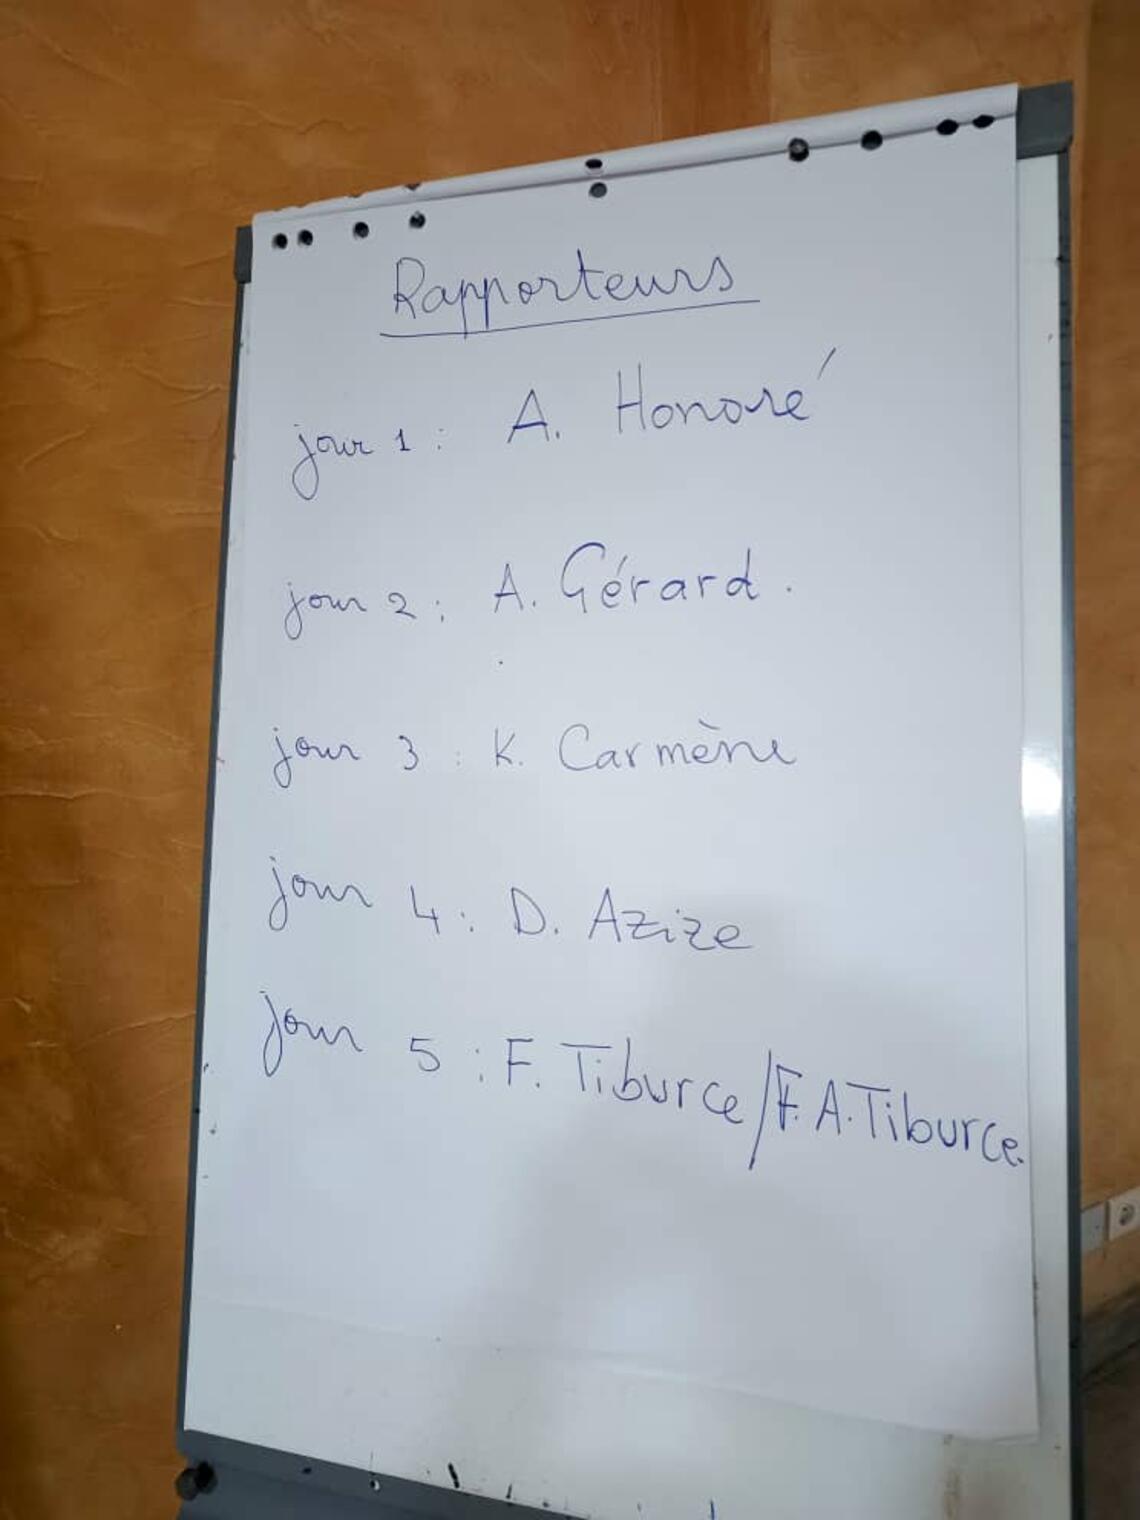 Rapporteurs
jour 1 : A. Honoré
jour 2 : A. Gérard.
jour 3 : K. Carmène
jour 4 : D. Azize
jour 5 : F. Tiburce/F.A.Tiburce.